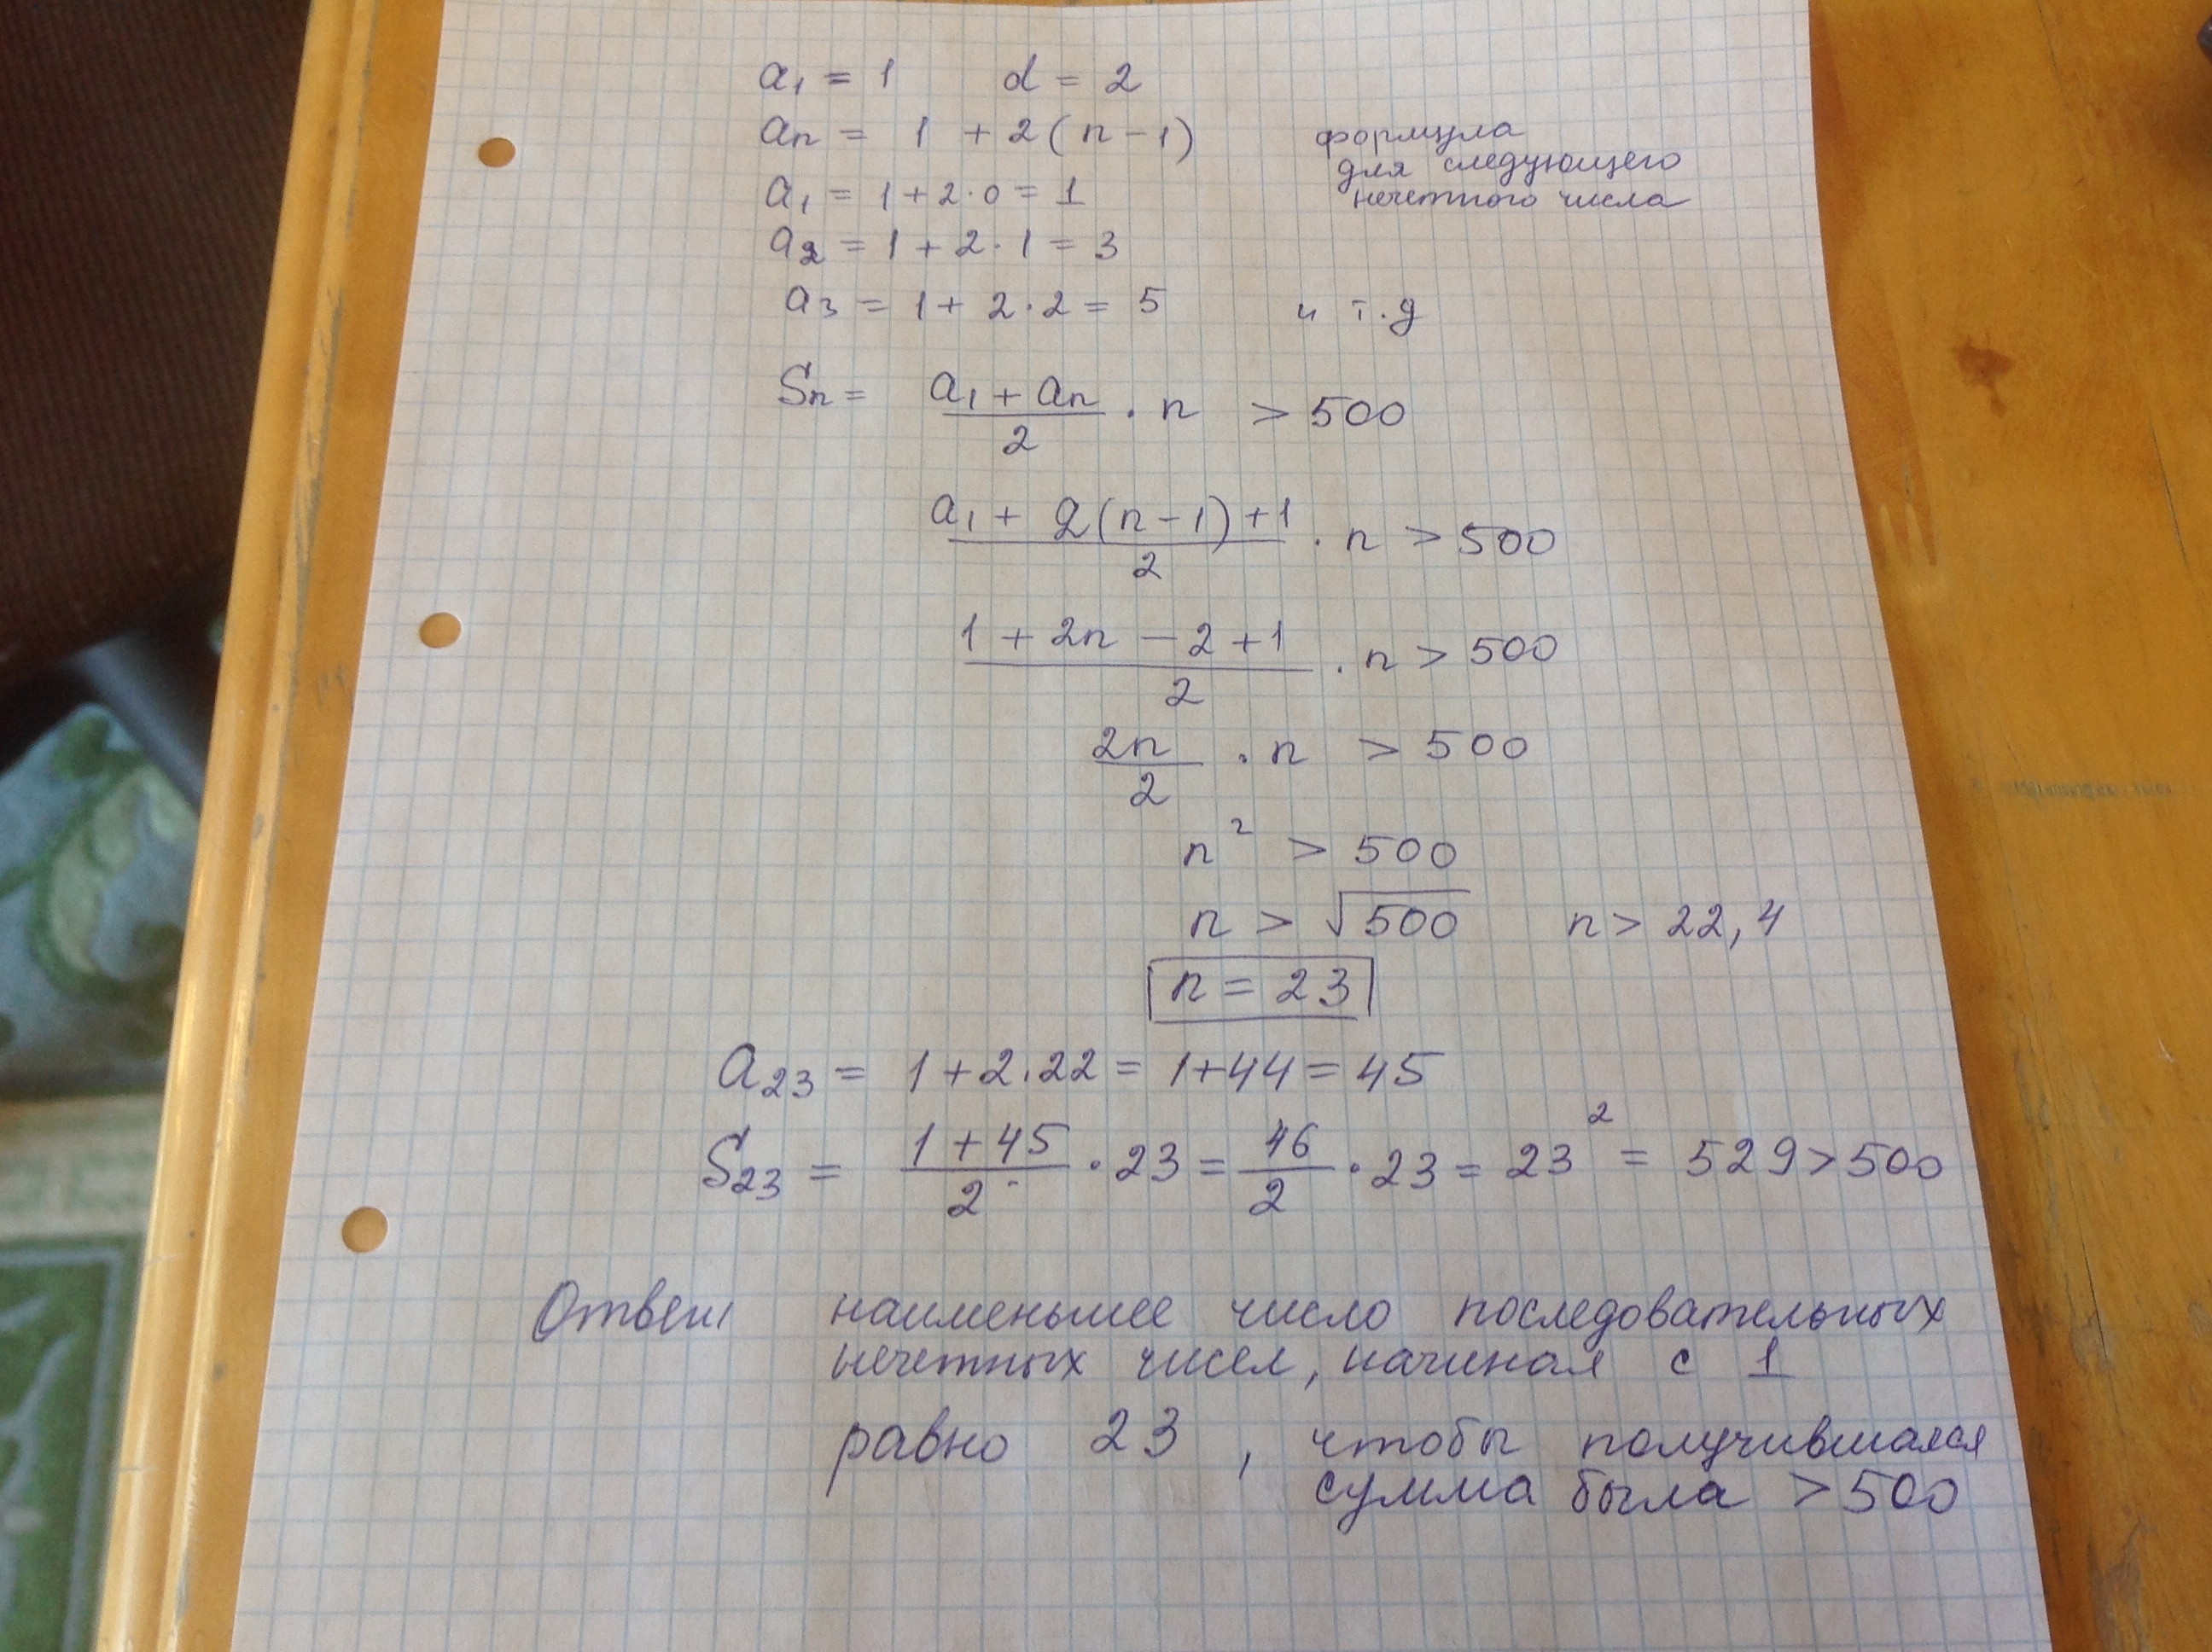 a₁ = 1 d = 2
aₙ = 1 + 2(n-1) формула
для следующего
нечетного числа
a₁ = 1+2·0 = 1
a₂ = 1+2·1 = 3
a₃ = 1+2·2 = 5 и т.д
Sₙ = (a₁ + aₙ)/2 · n > 500
(a₁ + 2(n-1)+1)/2 · n > 500
(1 + 2n - 2 + 1)/2 · n > 500
2n/2 · n > 500
n² > 500
n > √500 n > 22,4
n = 23
a₂₃ = 1+2·22 = 1+44 = 45
S₂₃ = (1+45)/2 · 23 = 46/2 · 23 = 23² = 529 > 500
Ответ наименьшее число последовательных
нечетных чисел, начиная с 1
равно 23, чтобы получившаяся
сумма была > 500